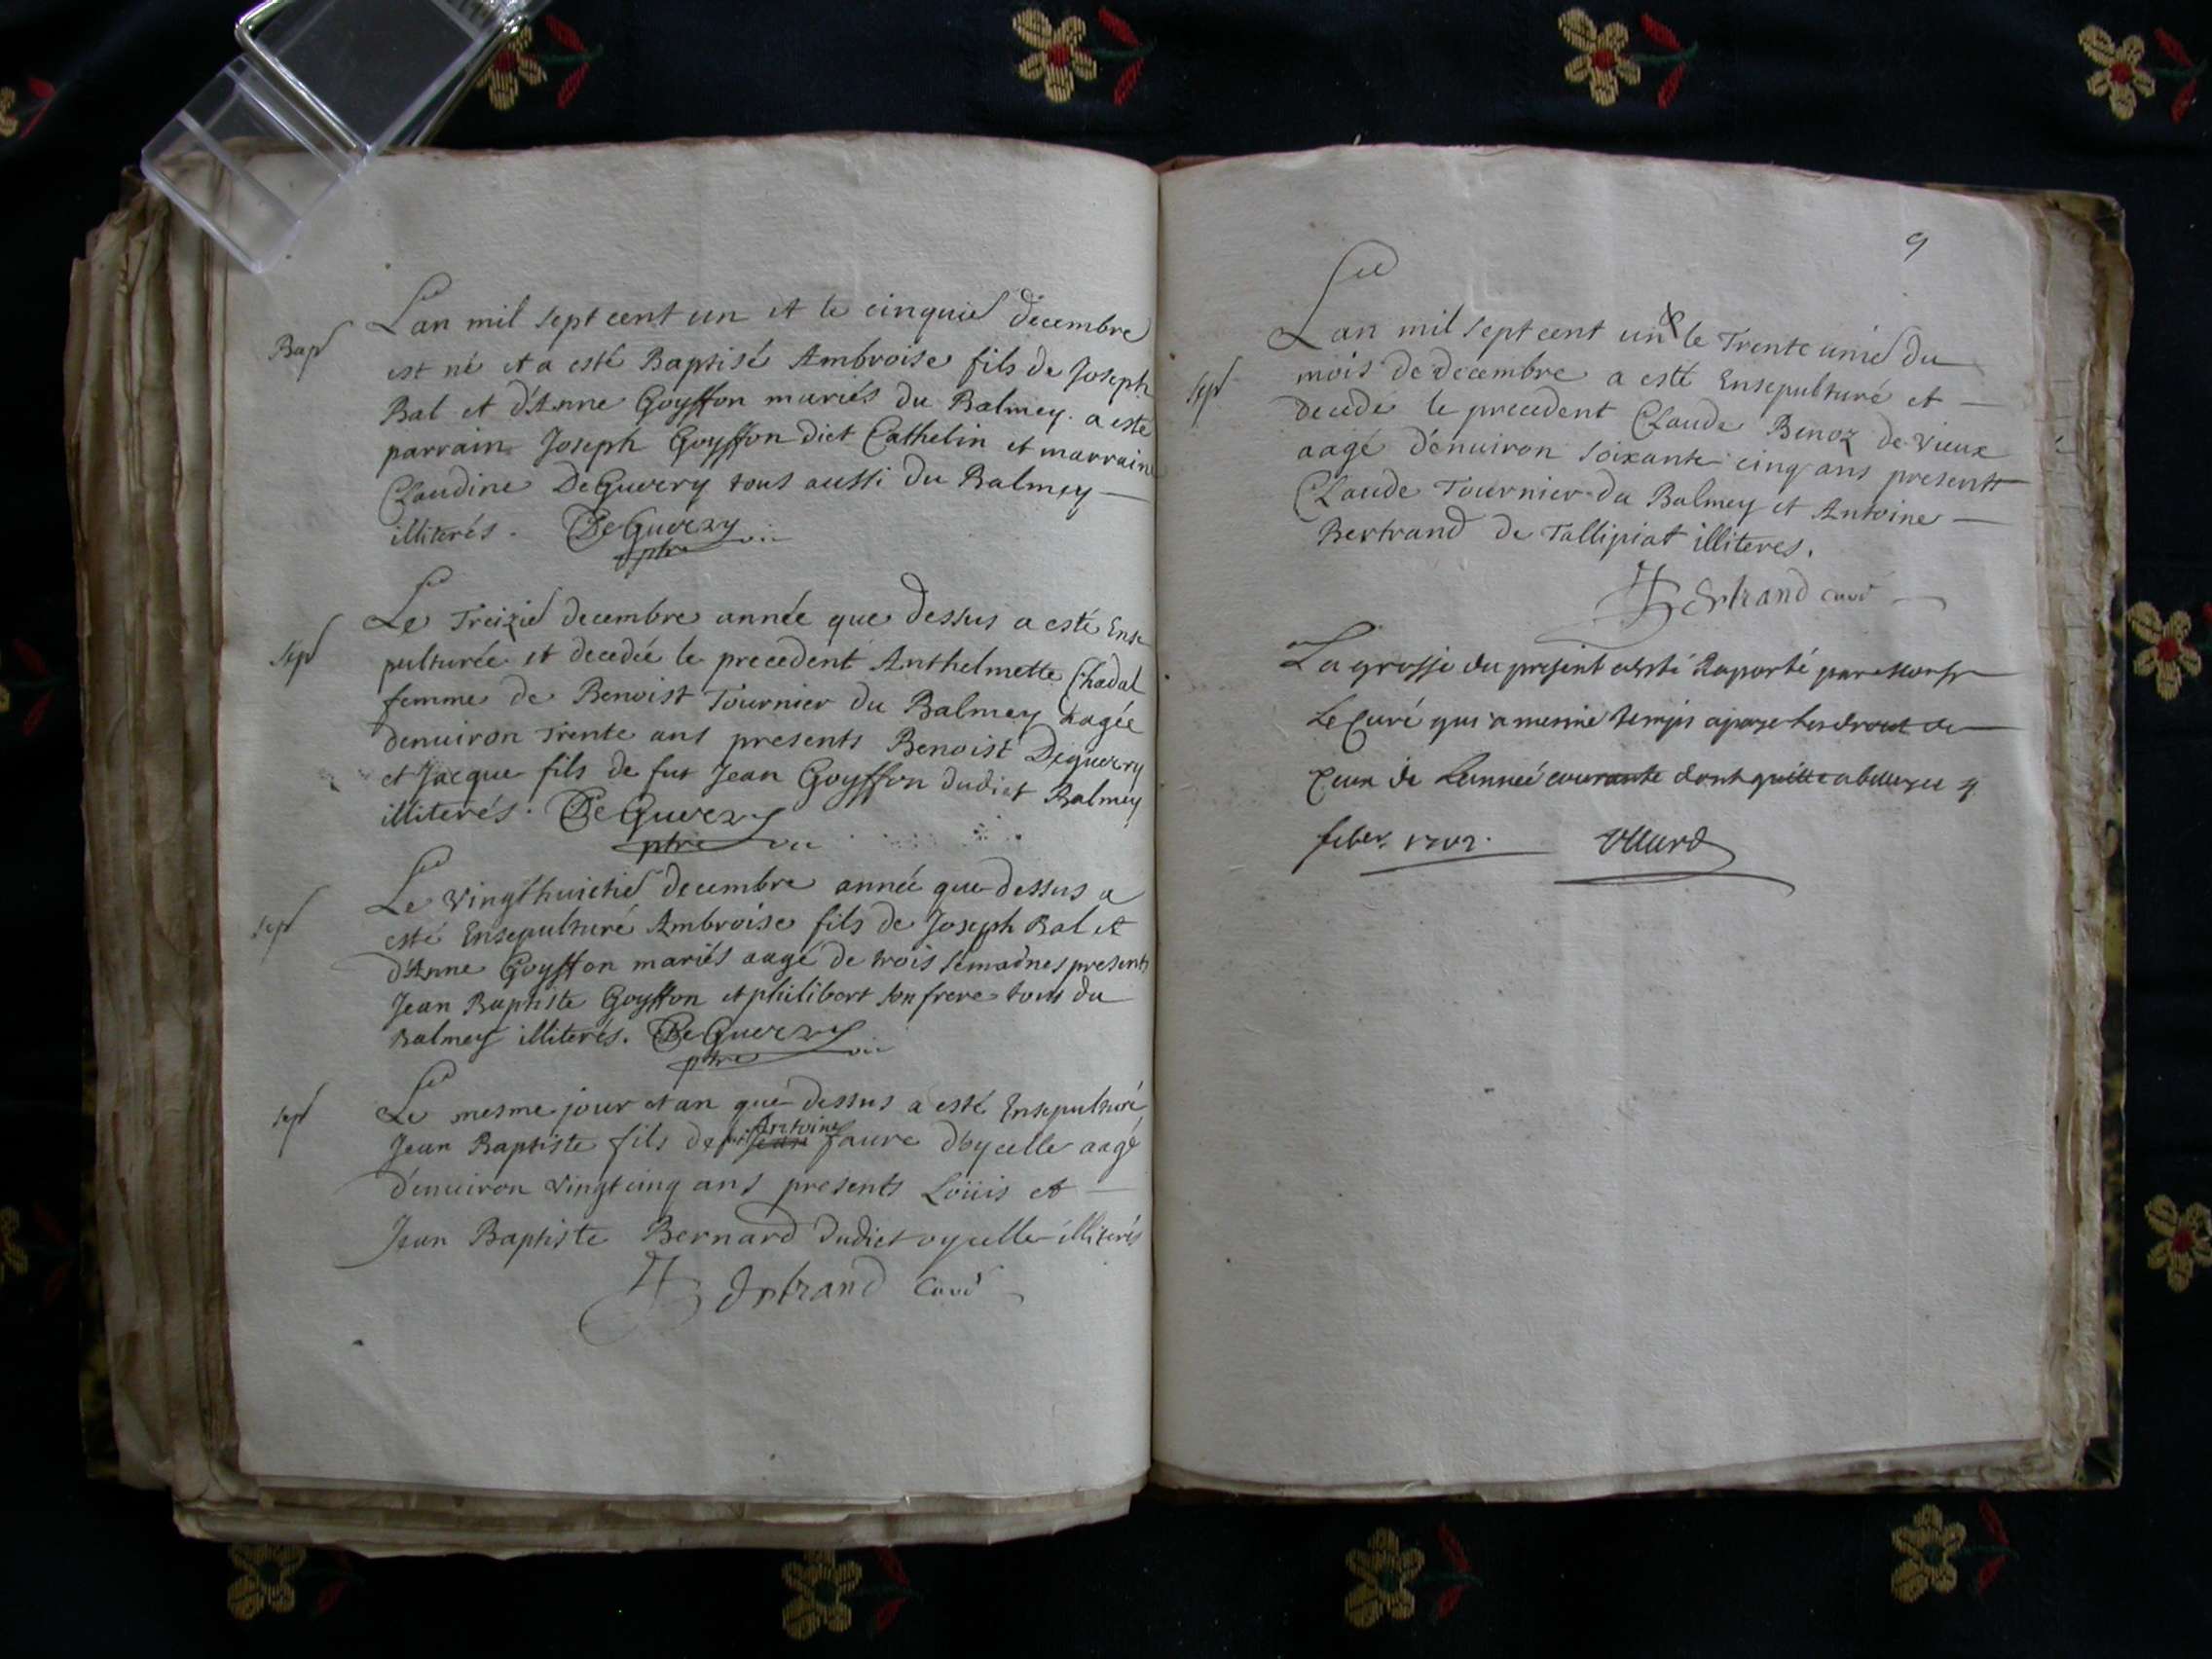 Bap
Lan mil sept cent un et le cinquie decembre
est né et a esté Baptisé Ambroise fils de Joseph
Bal et d'Anne Goyffon mariés du Balmey. a esté
parrain Joseph Goyffon dict Cathelin et marraine
Claudine DeGuerry tous aussi du Balmey
illiterés. DeGuerry
ptre vic
Sep
Le Treizie decembre année que dessus a esté Ense
pulturée et decedée le precedent Anthelmette Chadal
femme de Benoist Tournier du Balmey aagée
denuiron trente ans presents Benoist Deguerry
et Jacque fils de fut Jean Goyffon dudict Balmey
illiterés. DeGuerry
ptre vic
sep
Le vingthuictie decembre année que dessus a
esté Ensepulturé Ambroise fils de Joseph Bal et
d'Anne Goyffon mariés aagé de trois semaines presents
Jean Baptiste Goyffon et philibert son frere tous du
Balmey illiterés. DeGuerry
ptre vic
sep
Le mesme jour et an que dessus a esté Ensepulturé
Antoine
Jean Baptiste fils de Jean faure d'oycelle aagé
d'enuiron vingt cinq ans presents Loüis et
Jean Baptiste Bernard dudict oycelle illiterés
Bertrand curé
9
Sep
Lan mil sept cent un & le Trente unie du
mois de decembre a esté Ensepulturé et
decede le precedent Claude Binoz de vieux
aagé d'enuiron soixante cinq ans presents
Claude Tournier du Balmey et Antoine
Bertrand de Tallipiat illiteres.
Bertrand curé
La grosse du present a esté Raporté par Monsr
Le Curé qui a mesme temps a paye les droit de
Ceux de L'année courante dont quitte a belley ce 4
feber. 1702. Ollard